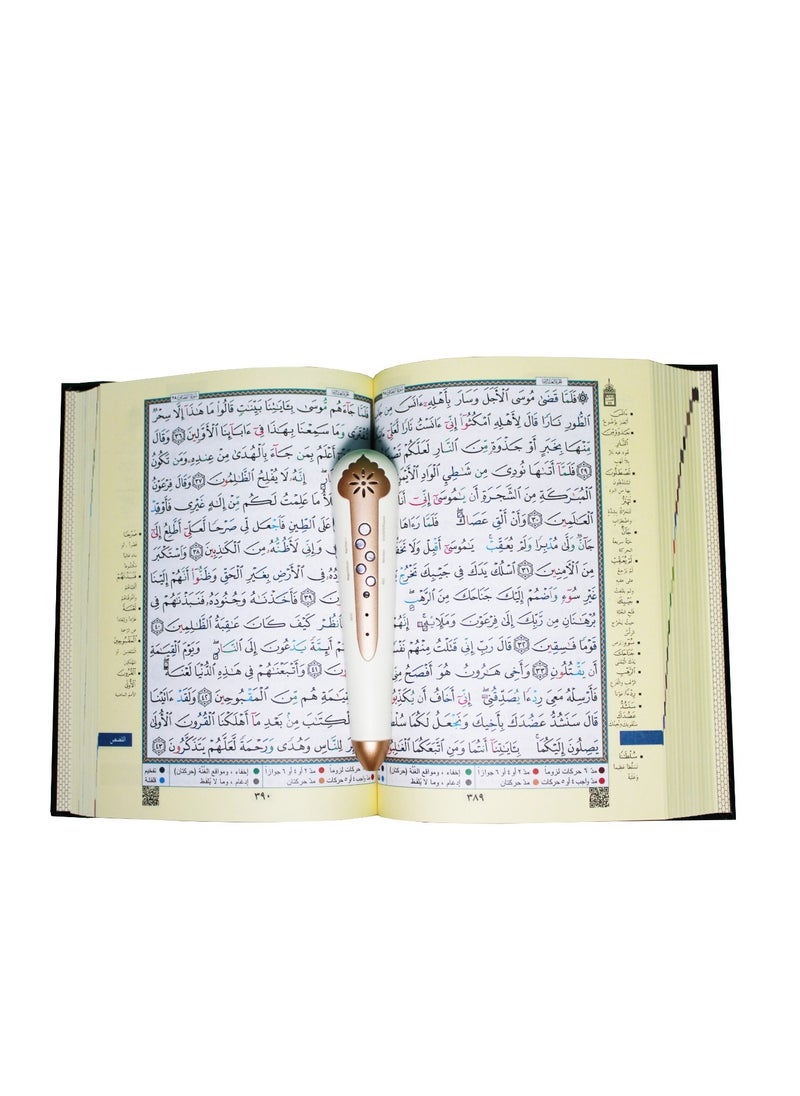 ۞ فَلَمَّا قَضَىٰ مُوسَى ٱلْأَجَلَ وَسَارَ بِأَهْلِهِۦٓ ءَانَسَ مِن
ٱلطُّورِ نَارًا قَالَ لِأَهْلِهِ ٱمْكُثُوٓا۟ إِنِّىٓ ءَانَسْتُ نَارًا لَّعَلِّىٓ
مِّنْهَا بِخَبَرٍ أَوْ جَذْوَةٍ مِّنَ ٱلنَّارِ لَعَلَّكُمْ
٢٩ فَلَمَّآ أَتَىٰهَا نُودِىَ مِن شَٰطِئِ ٱلْوَادِ
ٱلْمُبَٰرَكَةِ مِنَ ٱلشَّجَرَةِ أَن يَٰمُوسَىٰٓ إِنِّىٓ
ٱلْعَٰلَمِينَ ٣٠ وَأَنْ أَلْقِ عَصَاكَ ۖ فَلَمَّا رَءَاهَا
جَآنٌّ وَلَّىٰ مُدْبِرًا وَلَمْ يُعَقِّبْ ۚ يَٰمُوسَىٰٓ أَقْبِلْ وَلَا
مِنَ ٱلْءَامِنِينَ ٣١ ٱسْلُكْ يَدَكَ فِى جَيْبِكَ تَخْرُجْ
غَيْرِ سُوٓءٍ وَٱضْمُمْ إِلَيْكَ جَنَاحَكَ مِنَ ٱلرَّهْبِ ۖ
بُرْهَٰنَانِ مِن رَّبِّكَ إِلَىٰ فِرْعَوْنَ وَمَلَإِي۟هِۦٓ ۚ إِنَّهُمْ
قَوْمًا فَٰسِقِينَ ٣٢ قَالَ رَبِّ إِنِّى قَتَلْتُ مِنْهُمْ
أَن يَقْتُلُونِ ٣٣ وَأَخِى هَٰرُونُ هُوَ أَفْصَحُ
فَأَرْسِلْهُ مَعِىَ رِدْءًا يُصَدِّقُنِىٓ ۖ إِنِّىٓ أَخَافُ أَن
قَالَ سَنَشُدُّ عَضُدَكَ بِأَخِيكَ وَنَجْعَلُ لَكُمَا
يَصِلُونَ إِلَيْكُمَا ۚ بِـَٔايَٰتِنَآ أَنتُمَا وَمَنِ ٱتَّبَعَكُمَا
مدّ ٦ حركات لزوماً
مدّ ٢ أو ٤ أو ٦ جوازاً
إخفاء ، ومواقع الغُنَّة (حركتان)
مدّ واجب ٤ أو ٥ حركات
مدّ حركتان
إدغام ، وما لا يُلفظ
٣٨٩
فَلَمَّا جَآءَهُم مُّوسَىٰ بِـَٔايَٰتِنَا بَيِّنَٰتٍ قَالُوا۟ مَا هَٰذَآ إِلَّا سِحْرٌ
مُّفْتَرًى وَمَا سَمِعْنَا بِهَٰذَا فِىٓ ءَابَآئِنَا ٱلْأَوَّلِينَ ٣٦ وَقَالَ
أَعْلَمُ بِمَن جَآءَ بِٱلْهُدَىٰ مِنْ عِندِهِۦ وَمَن تَكُونُ
إِنَّهُۥ لَا يُفْلِحُ ٱلظَّٰلِمُونَ ٣٧ وَقَالَ فِرْعَوْنُ
مَا عَلِمْتُ لَكُم مِّنْ إِلَٰهٍ غَيْرِى فَأَوْقِدْ
عَلَى ٱلطِّينِ فَٱجْعَل لِّى صَرْحًا لَّعَلِّىٓ أَطَّلِعُ إِلَىٰٓ
وَإِنِّى لَأَظُنُّهُۥ مِنَ ٱلْكَٰذِبِينَ ٣٨ وَٱسْتَكْبَرَ
فِى ٱلْأَرْضِ بِغَيْرِ ٱلْحَقِّ وَظَنُّوٓا۟ أَنَّهُمْ إِلَيْنَا
٣٩ فَأَخَذْنَٰهُ وَجُنُودَهُۥ فَنَبَذْنَٰهُمْ فِى
فَٱنظُرْ كَيْفَ كَانَ عَٰقِبَةُ ٱلظَّٰلِمِينَ ٤٠
أَئِمَّةً يَدْعُونَ إِلَى ٱلنَّارِ ۖ وَيَوْمَ ٱلْقِيَٰمَةِ
٤١ وَأَتْبَعْنَٰهُمْ فِى هَٰذِهِ ٱلدُّنْيَا لَعْنَةً
هُم مِّنَ ٱلْمَقْبُوحِينَ ٤٢ وَلَقَدْ ءَاتَيْنَا
ٱلْكِتَٰبَ مِنۢ بَعْدِ مَآ أَهْلَكْنَا ٱلْقُرُونَ ٱلْأُولَىٰ
لِلنَّاسِ وَهُدًى وَرَحْمَةً لَّعَلَّهُمْ يَتَذَكَّرُونَ ٤٣
القصص
حركات لزوماً
مدّ ٢ أو ٤ أو ٦ جوازاً
إخفاء ، ومواقع الغُنَّة (حركتان)
تفخيم
مدّ واجب ٤ أو ٥ حركات
مدّ حركتان
إدغام ، وما لا يُلفظ
قلقلة
٣٩٠